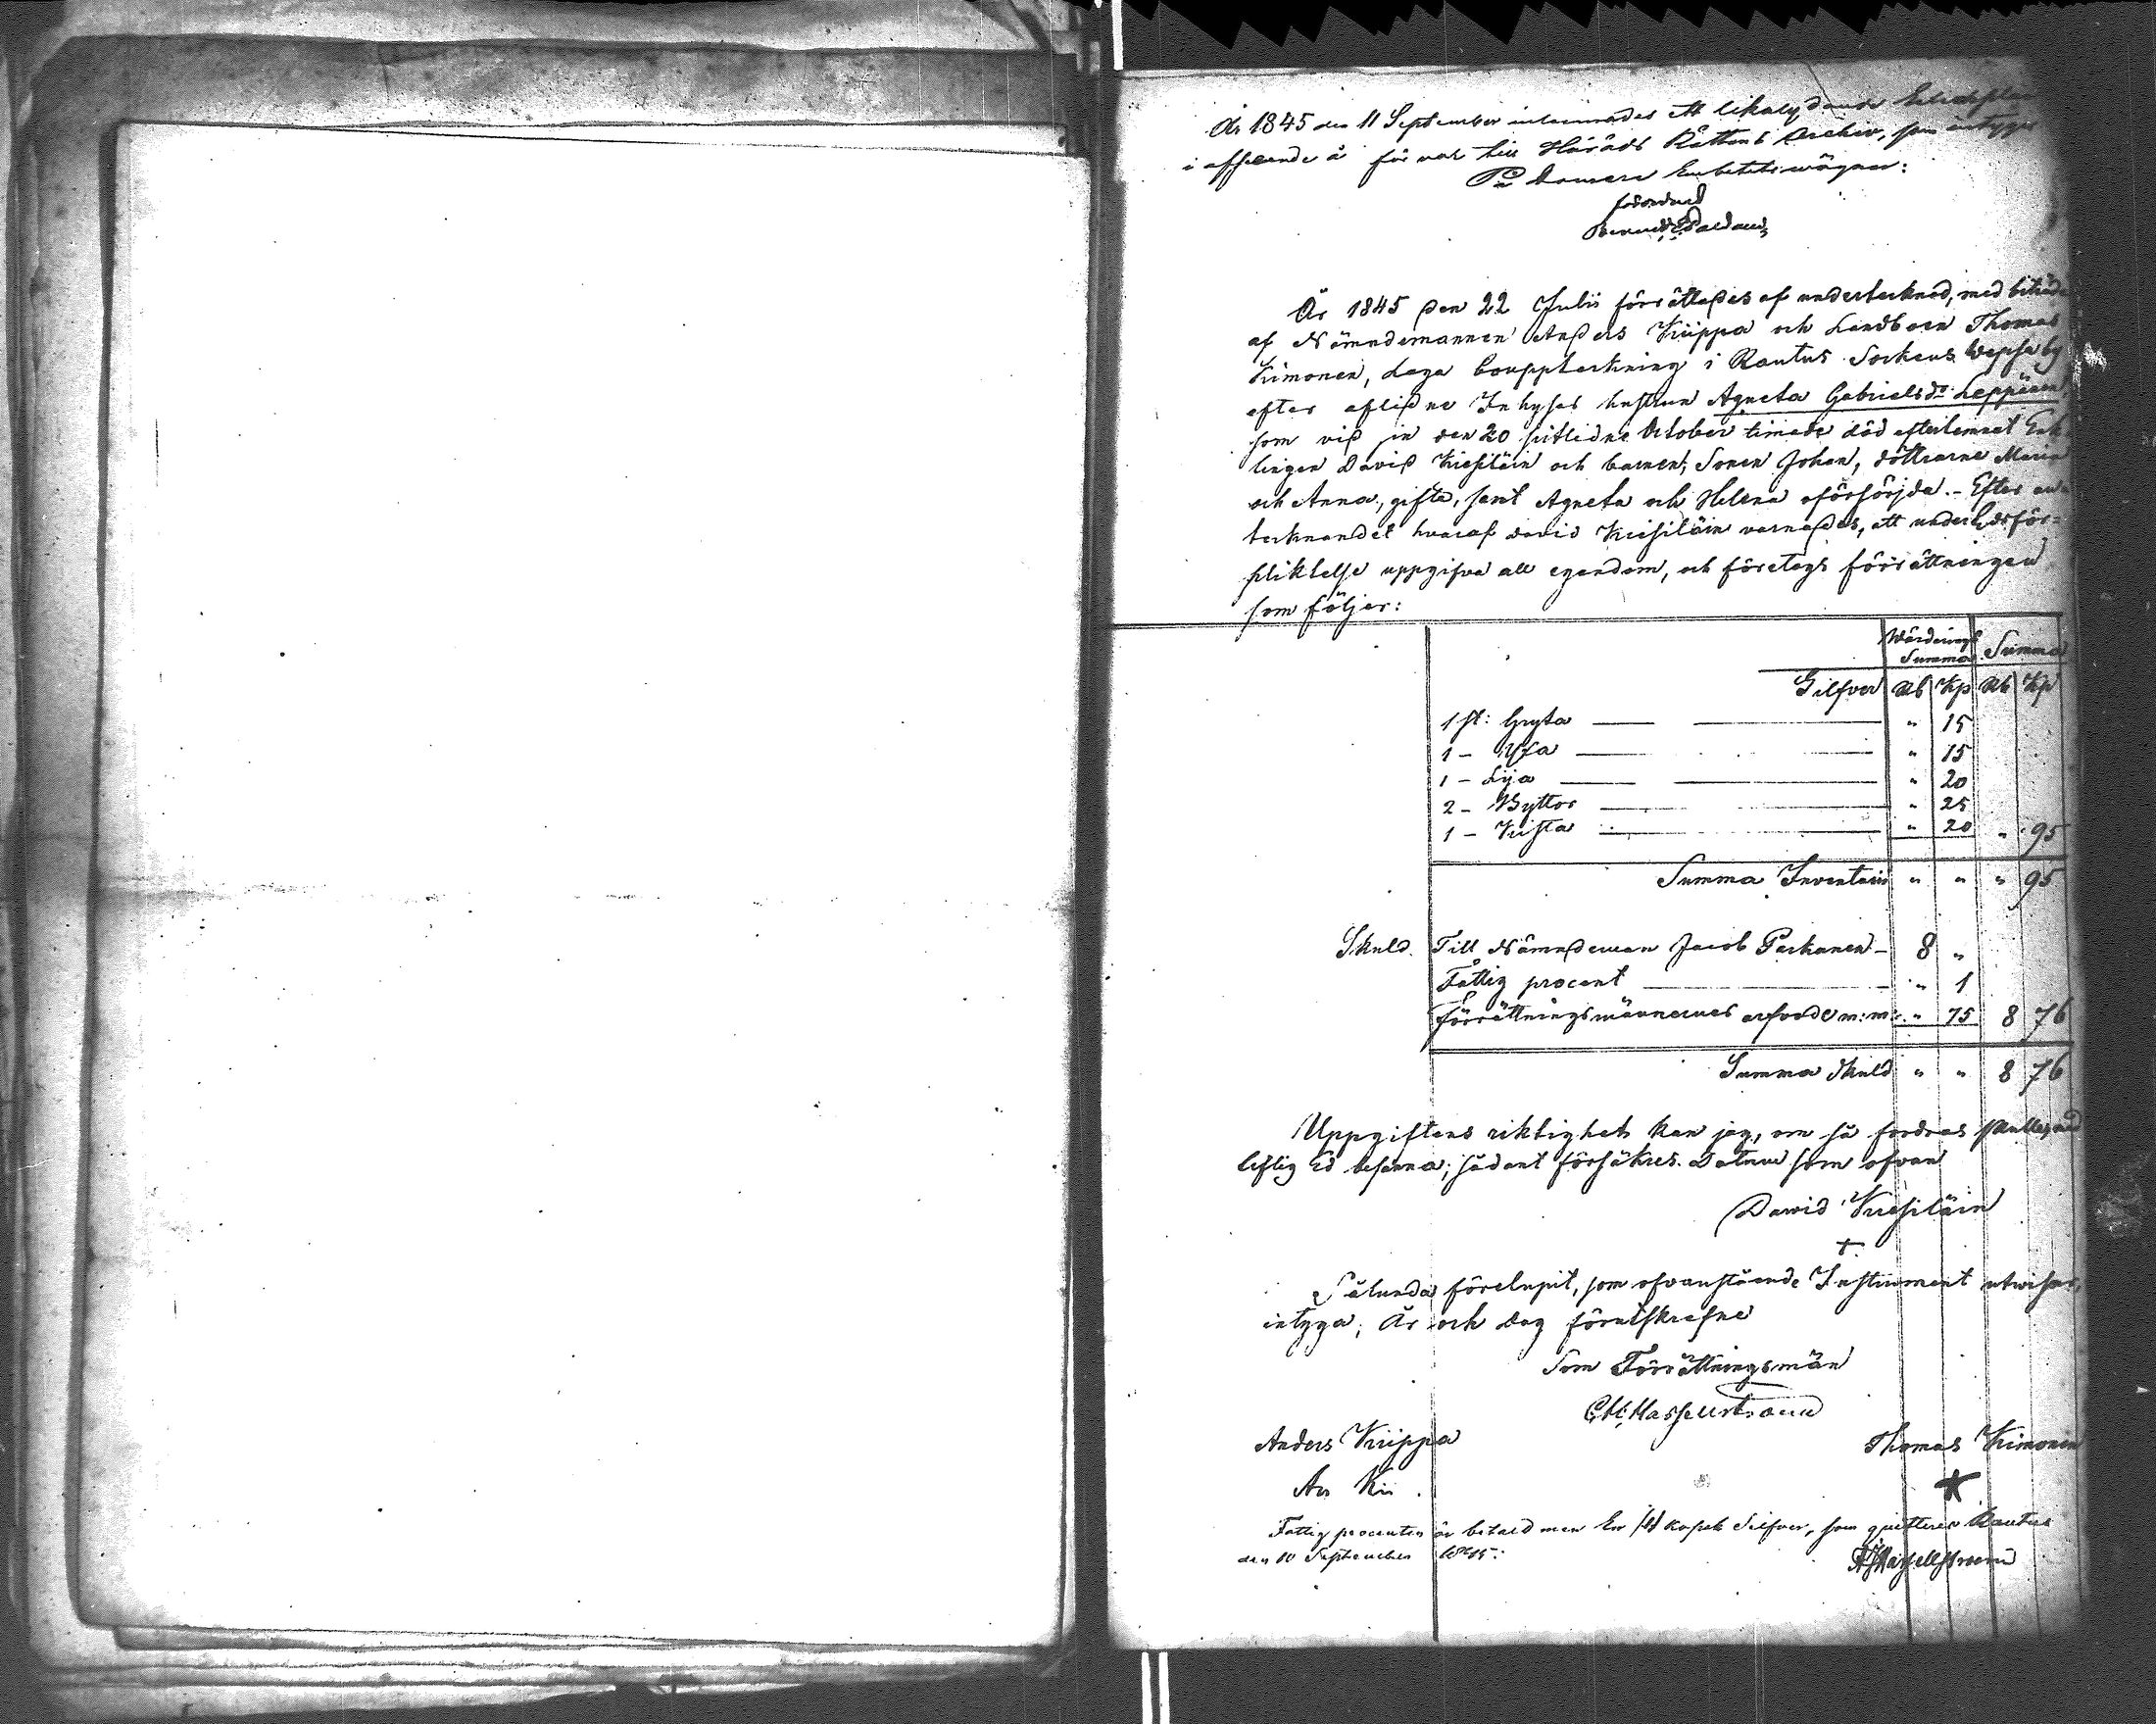 År 1845 den 11 September inlemnades ett likalydande
i afseende å förvar till Härads Rättens Archiv, som intygas
På Domare Embetets wägnar:
förordnad
År 1845 den 22 Julii förrättades af undertecknad, med biträde
af Nämndemannen Anders Kiippa och Landboen Thomas
Kimonen, Laga bouppteckning i Rautus Sockens Wepsa by
efter aflidne Inhyses hustrun Agneta Gabrielsdr Leppänen
som vid sin den 20 sistlidne October timade död efterlemnat Enk-
lingen David Kiesiläin och barnen; Sonen Johan, döttrarne Maria
och Anna, gifta, samt Agneta och Helena oförsörjda. - Efter an-
tecknandet hvaraf David Kiesiläin varnades, att under Edsför-
pliktelse uppgifva all egendom, och företogs förrättningen
som följer:
Wärderings Summa Summa
Silfver Rb Kp Rb Kp
1 st: Gryta — " 15
1 - Yxa — " 15
1 - Lija — " 20
2 - Byttor — " 25
1 - Kista — " 20 " 95
Summa Inventarii " " " 95
Skuld. Till Nämndeman Jacob Parkanen - 8 "
Fattig procent — " 1
Förrättningsmännernes arfvode m:m: " 75 8 76
Summa Skuld " " 8 76
Uppgiftens riktighet kan jag, om så fordras skulle, med
liflig Ed besanna; sådant försäkras. Datum som ofvan
David Kiesiläin
+
Sålunda förelupit, som ofvanstående Instrument utwisar,
intyga; År och dag förutskrefne
Som Förrättningsmän
Anders Kiippa Thomas Kimonen
An Kii
Fattig procenten är betald men En /1/ kopek Silfver, som quitteras Rautus
den 10 September 1845: